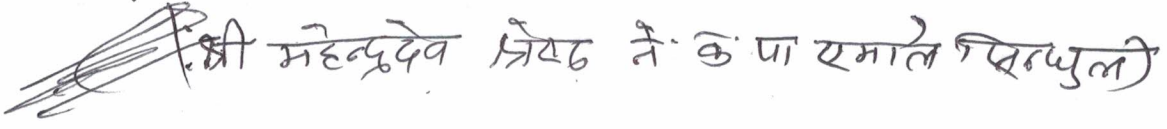 श्री महेन्द्रदेव श्रेष्ठ ने. क. पा एमाले सिन्धुली